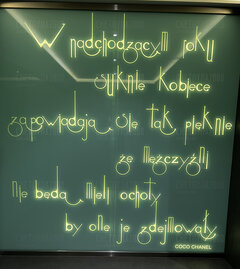 W nadchodzącym roku
suknie kobiece
zapowiadają się tak pięknie
że mężczyźni
nie będą mieli ochoty
by one je zdejmowały
COCO CHANEL